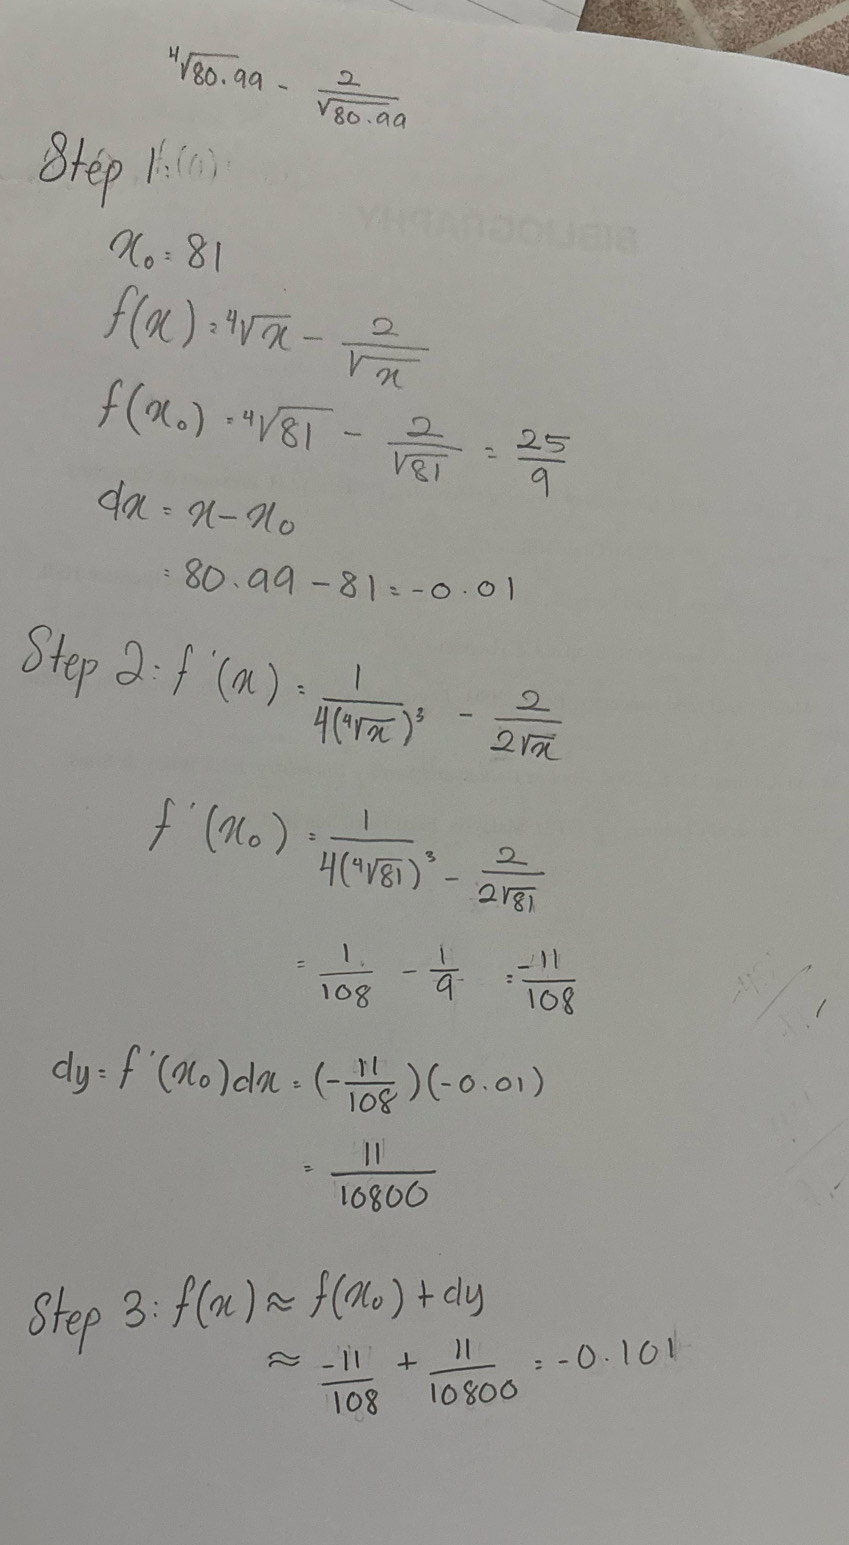 ⁴√80.99 - 2/√80.99
Step 1:(a):
BIBLIOGRAPHY
x₀ = 81
f(x) = ⁴√x - 2/√x
f(x₀) = ⁴√81 - 2/√81 = 25/9
dx = x - x₀
= 80.99 - 81 = -0.01
Step 2: f'(x) = 1/4(⁴√x)³ - 2/2√x
f'(x₀) = 1/4(⁴√81)³ - 2/2√81
= 1/108 - 1/9 = -11/108
dy = f'(x₀)dx = (-11/108)(-0.01)
= 11/10800
Step 3: f(x) ≈ f(x₀) + dy
≈ -11/108 + 11/10800 = -0.101